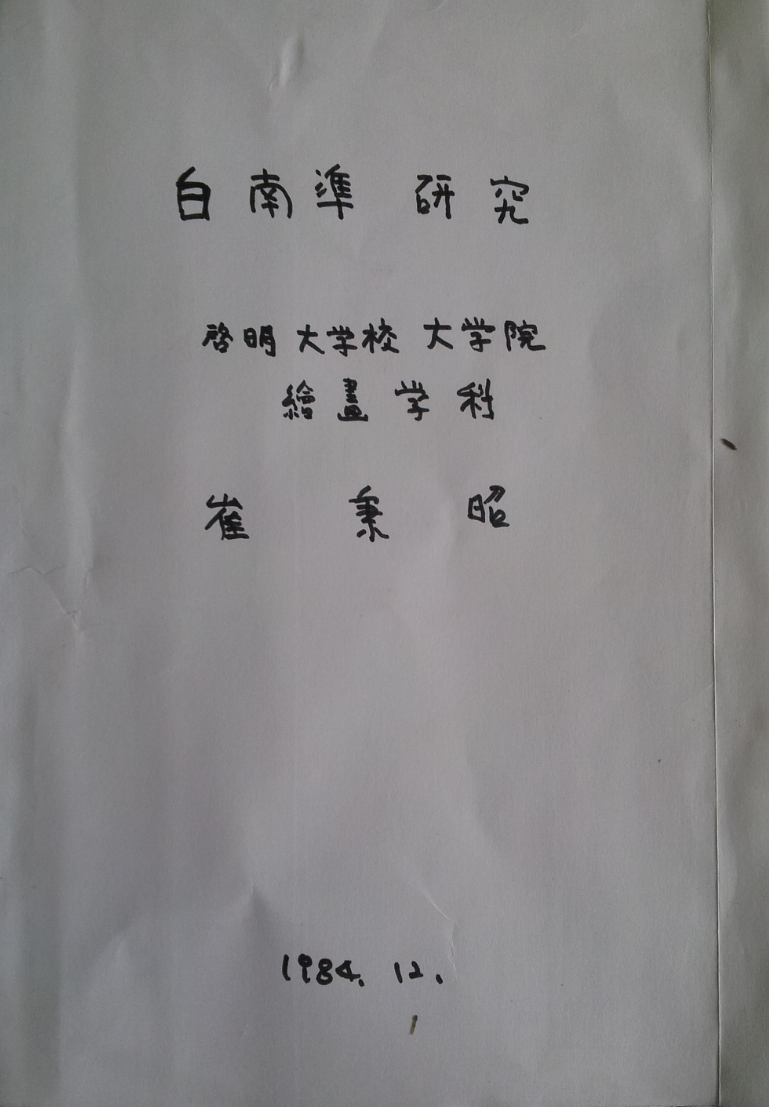 白南準 研究
啓明 大学校 大学院
繪畫学科
崔秉昭
1984. 12.